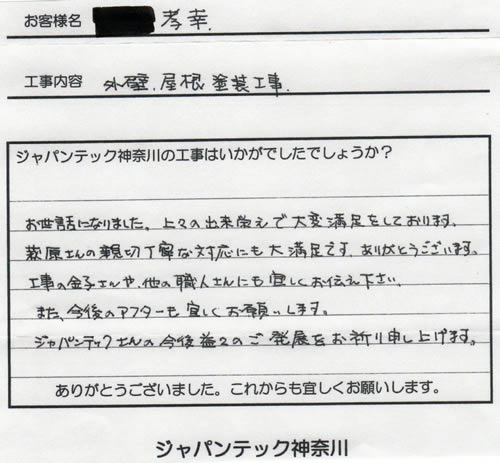 お客様名 孝幸.
工事内容 外壁.屋根塗装工事.
ジャパンテック神奈川の工事はいかがでしたでしょうか？
お世話になりました。上々の出来栄えで大変満足をしております。
萩原さんの親切丁寧な対応にも大満足です。ありがとうございます。
工事の金子さんや、他の職人さんにも宜しくお伝え下さい。
また、今後のアフターも宜しくお願いします。
ジャパンテックさんの今後益々のご発展をお祈り申し上げます。
ありがとうございました。これからも宜しくお願いします。
ジャパンテック神奈川